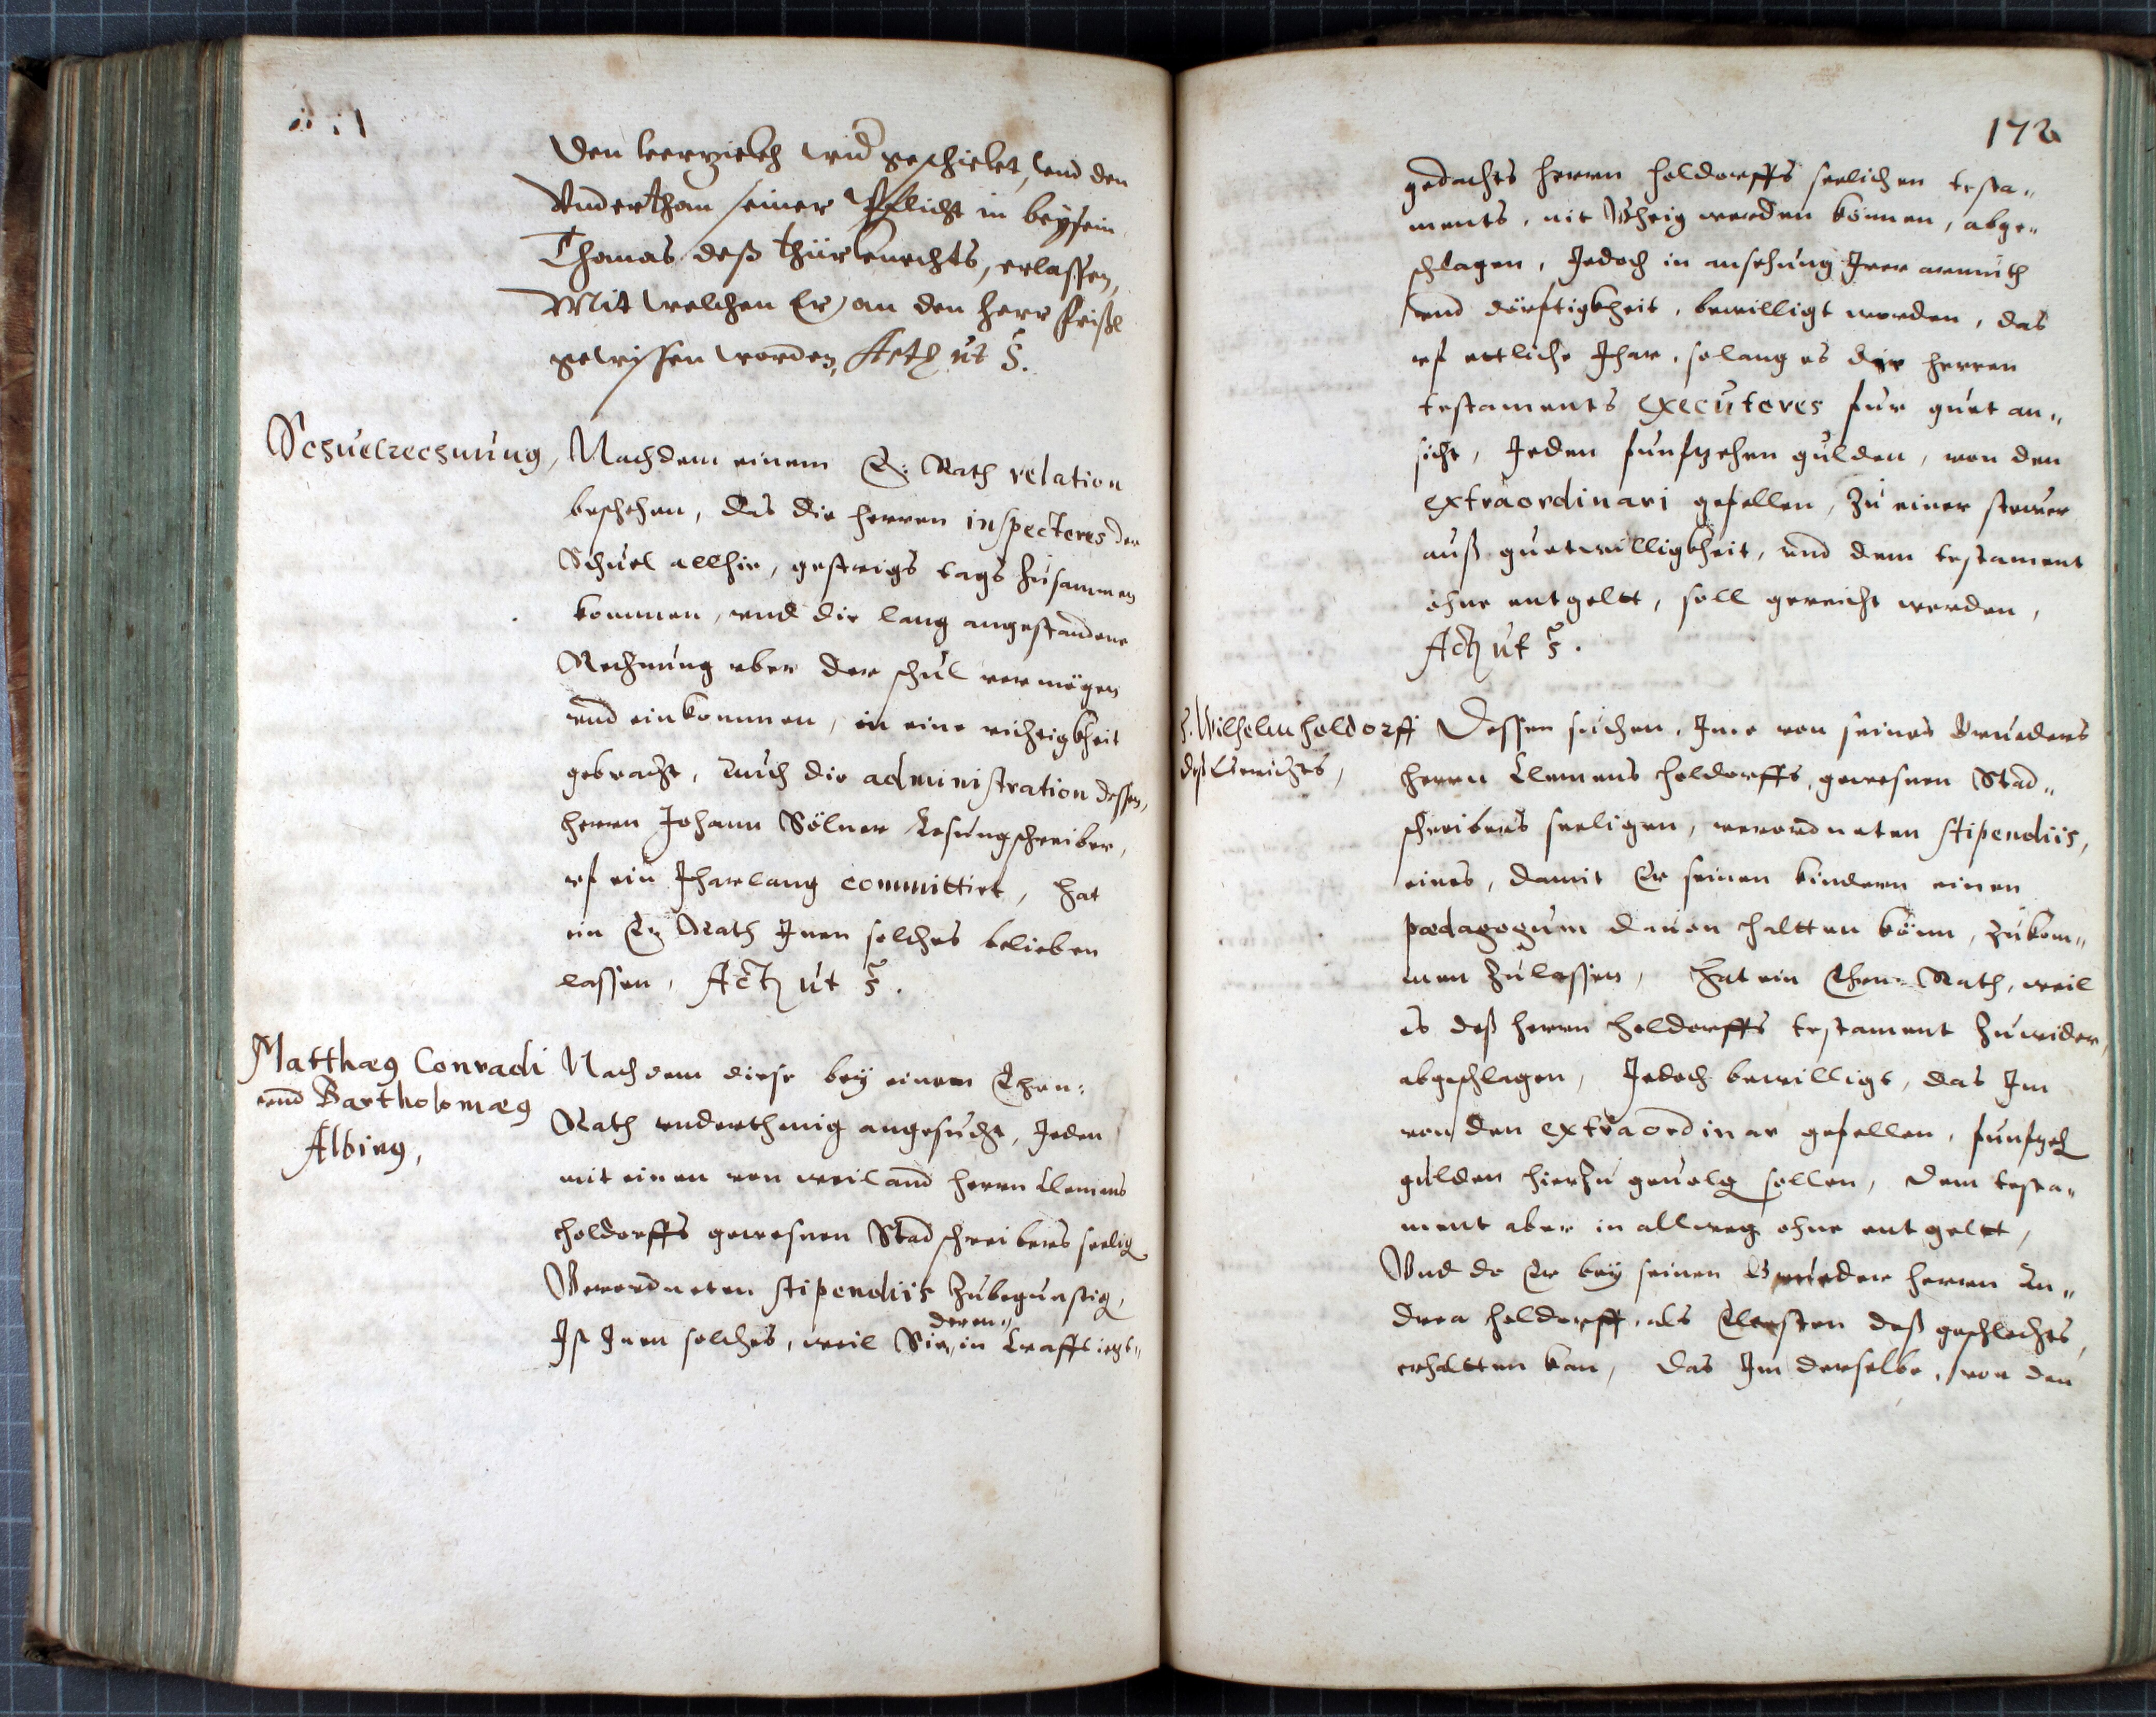 den wid geschickt, vnd den
Vnderthan seiner Pflicht in beysein
Thomas deß thürknechts, erlassen,
Mit welchen Er an den herr
gewissen worden, Actum ut s.
Schuelrechnung, Nachdem einem E: Rath relation
beschehen, das die herren inspectores der
Schuel allhie, gestrigs tags zusammen
kommen, vnd die lang angestandene
Rechnung vber der schul vermögen
vnd einkommen, in eine richtigkheit
gebracht, auch die administration dessen,
herrn Johann Sölner Losungschreiber,
vf ein Jharlang committirt, hat
ein E. Rath Inen solches belieben
lassen, Actum ut s.
Matthæus Conradi
vnd Bartholomæus
Albinus,
Nachdem diese bey einem Ehrn:
Rath vnderthenig angesucht, Jeden
mit einen von weiland herrn Clemens
holdorffs gewesnen Stadschreibers seelig
Verordneten stipendiis zubegunstig,
Ist Inen solches, weil Sie, deren" in Crafft iezt"
172
gedachts herrn holdorffs seelichen testa"
ments, nit Vheig werden können, abge"
schlagen, Jedoch in ansehung Irer armuth
vnd dörfftigkheit, bewilligt worden, das
vf ettliche Jhar, solang es die herren
testaments executores fur guet an"
sicht, Jeden funfzehen gulden, von den
extraordinari gefellen, zu einer steuer
auß guetwilligkheit, vnd dem testament
ohne entgeltt, soll gereicht werden,
Actum ut s.
H. Wilhelm holdorff
deß Gerichts,
Dessen suchen, Ime von seines Brueders
herrn Clemens holdorffs, gewesnen Stad"
schreibers seeligen, verordneten stipendiis,
eines, damit Er seinen kindern einen
pædagogum dauon haltten könn, zukom"
men zulassen, hat ein Ehrn: Rath, weil
es deß herrn holdorffs testament zuwider,
abgeschlagen, Jedoch bewilligt, das Im
von den extraordinar gefellen, funfzeh
gulden hierzu geuolg sollen, dem testa"
ment aber in allweg ohne entgeltt,
Vnd do Er bey seinen Brueder herrn An"
drea holdorff, als Eltesten deß geschlechts,
erhaltten kan, das Im derselbe, von den